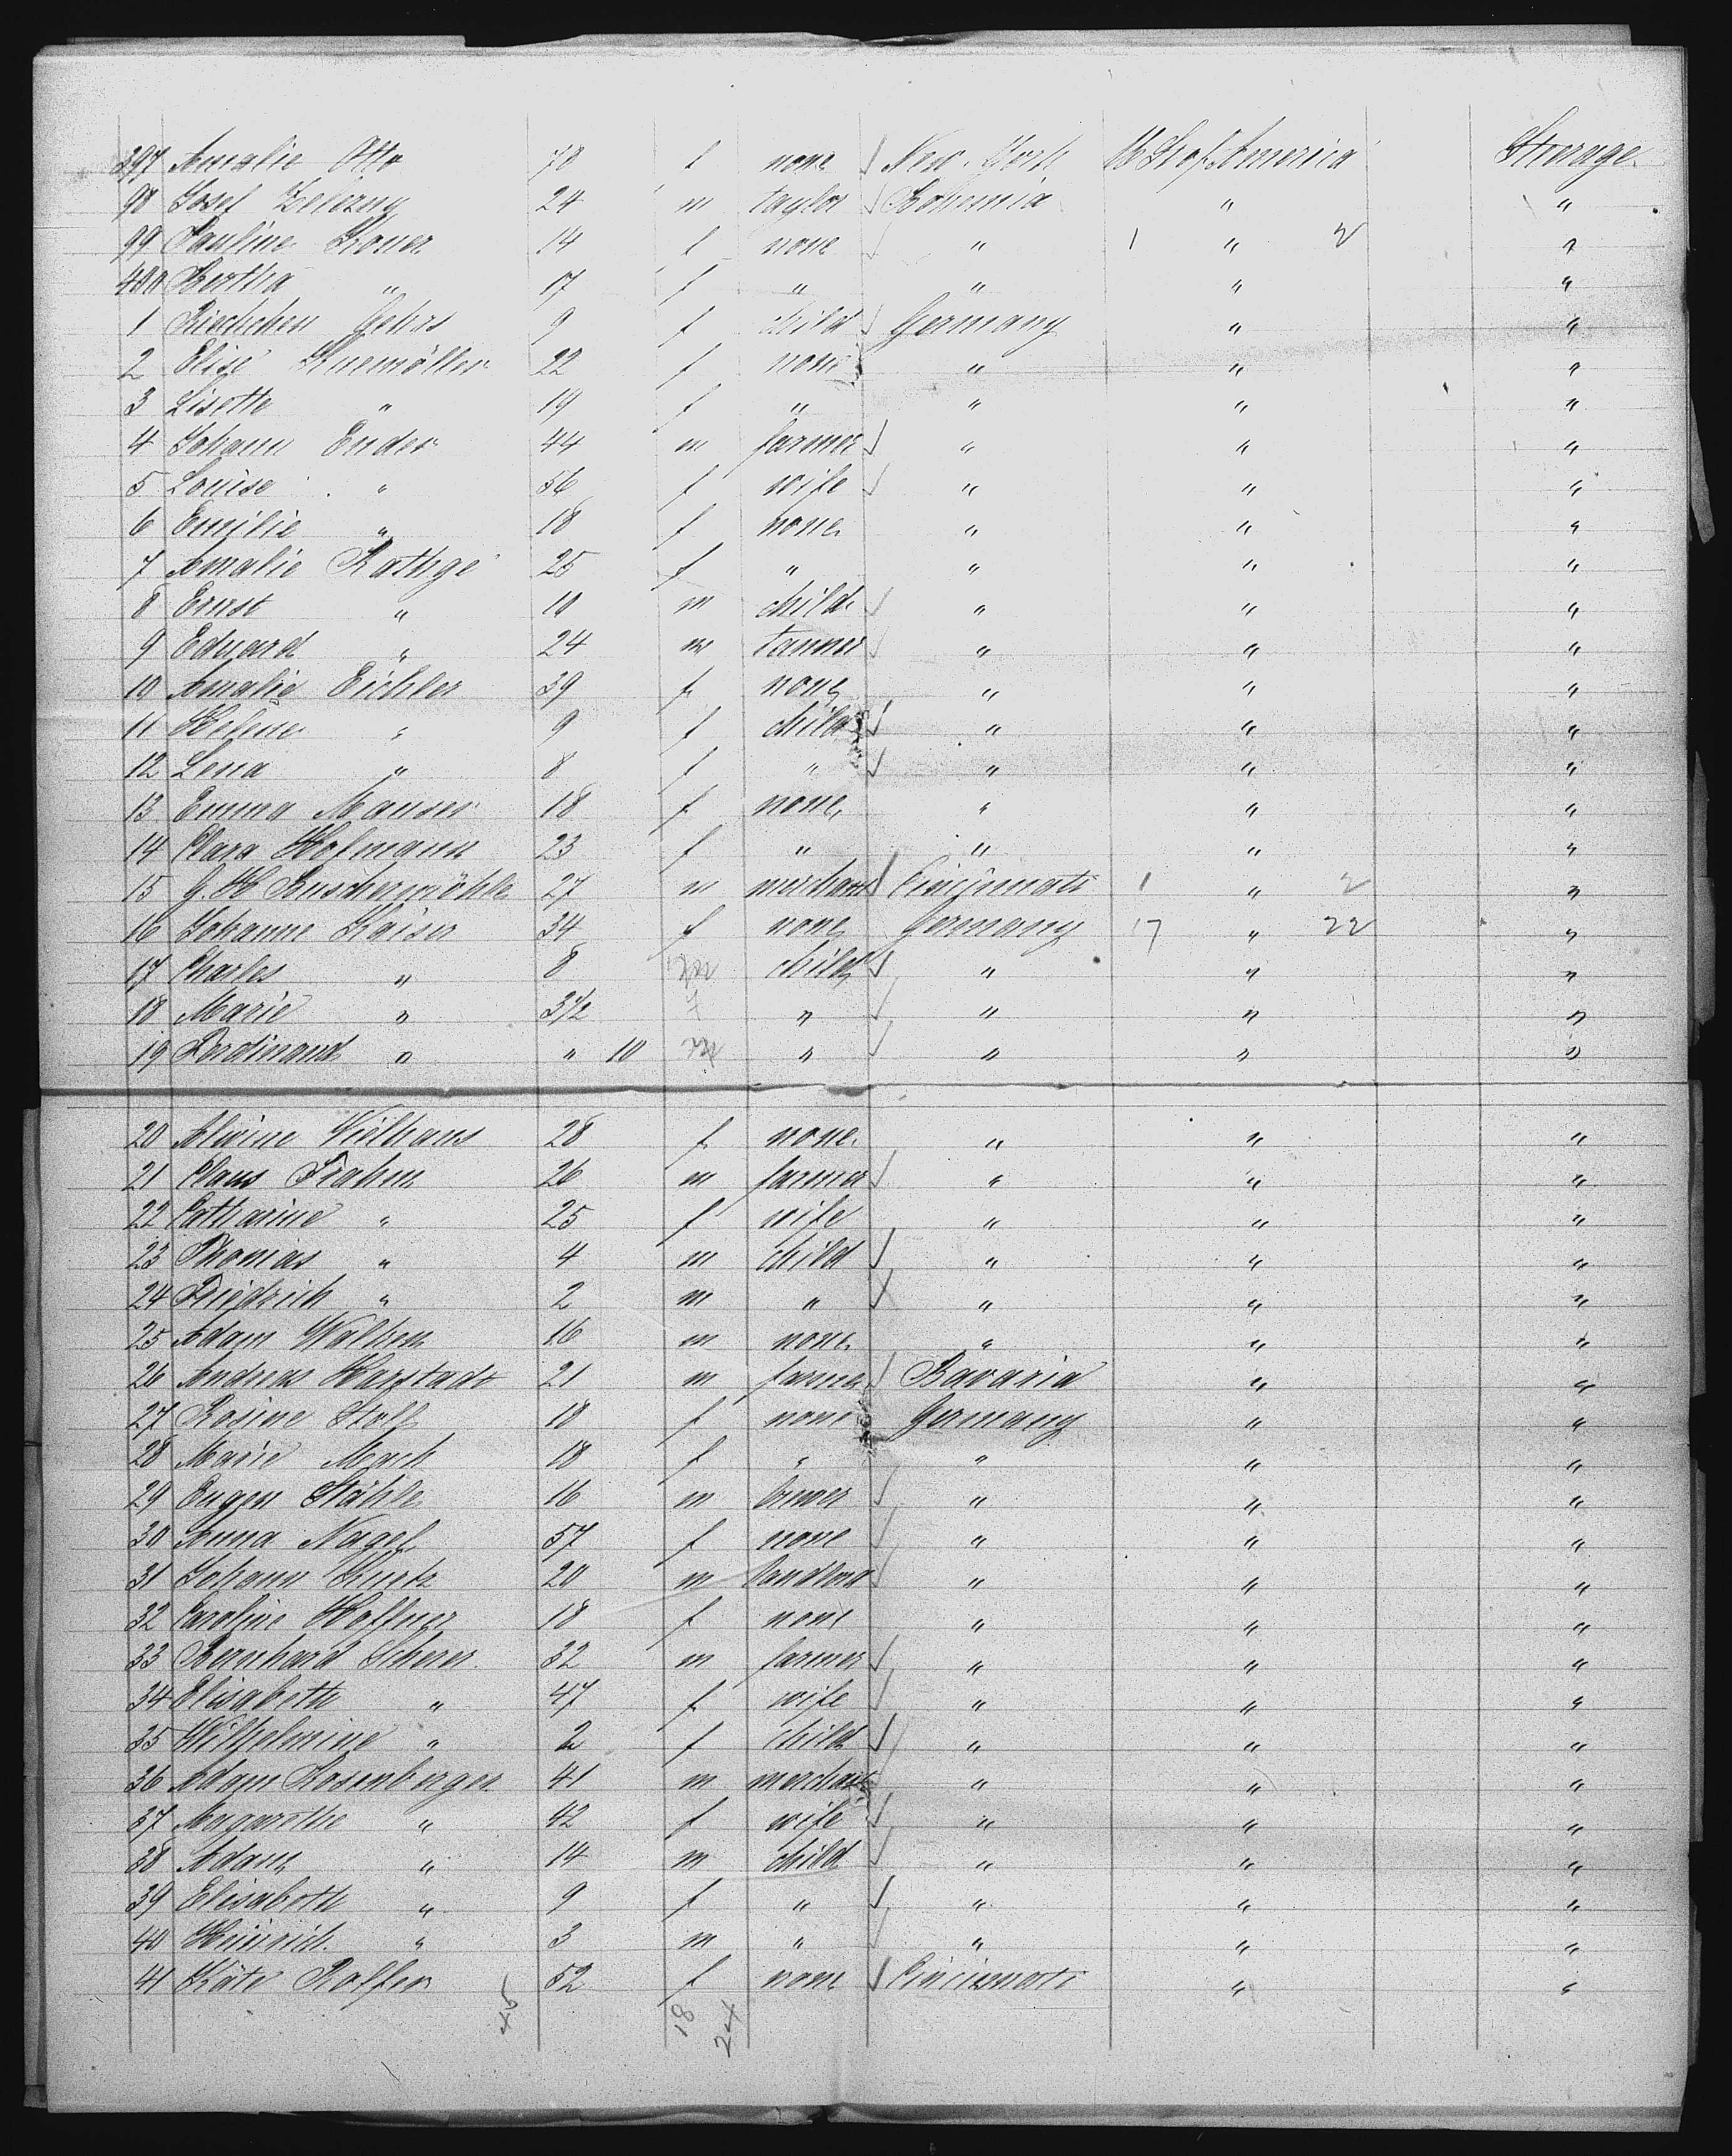 397 Amalie Otto 78 f none New-York US of America Steerage
98 Josef Zelezny 24 m taylor Bohemia " "
99 Pauline Kroner 14 f none " 1 " 2 "
400 Bertha " 17 f " " " "
1 Riechchen Gehrs 9 f child Germany " "
2 Elise 22 f none " " "
3 Lisette " 19 f " " " "
4 Johann Ender 44 m farmer " " "
5 Louise " 56 f wife " " "
6 Emilie " 18 f none " " "
7 Amalie Rathge 25 f " " " "
8 Ernst " 10 m child " " "
9 Eduard " 24 m tanner " " "
10 Amalie Eichler 39 f none " " "
11 Helene " 9 f child " " "
12 Lena " 8 f " " " "
13 Emma Manser 18 f none " " "
14 Clara Hofmann 23 f " " " "
15 G. H Buschermöhle 27 m merchant Cincinnati 1 " 2 "
16 Johanne Kaiser 34 f none Germany 17 " 22 "
17 Charles " 8 m child " " "
18 Marie " 3 1/2 f " " " "
19 Ferdinand " " 10 m " " " "
20 Alwine Vielhaus 28 f none " " "
21 Claus Frahm 26 m farmer " " "
22 Catharine " 25 f wife " " "
23 Thomas " 4 m child " " "
24 Friedrich " 2 m " " " "
25 Adam Walken 16 m none " " "
26 Andreas Harstadt 21 m farmer Bavaria " "
27 Rosine Stoll 18 f none Germany " "
28 Marie Mack 18 f " " " "
29 Eugen Stähle 16 m brewer " " "
30 Anna Nagel 57 f none " " "
31 Johann Kurtz 20 m landlord " " "
32 Caroline Hoffner 18 f none " " "
33 Bernhard Scherer 32 m farmer " " "
34 Elisabeth " 47 f wife " " "
35 Wilhelmine " 2 f child " " "
36 Adam Rosenberger 41 m merchant " " "
37 Magarethe " 42 f wife " " "
38 Adam " 14 m child " " "
39 Elisabeth " 9 f " " " "
40 Heinrich " 3 m " " " "
41 Käte Rolfes 52 f none Cincinnati " "
45 18 24